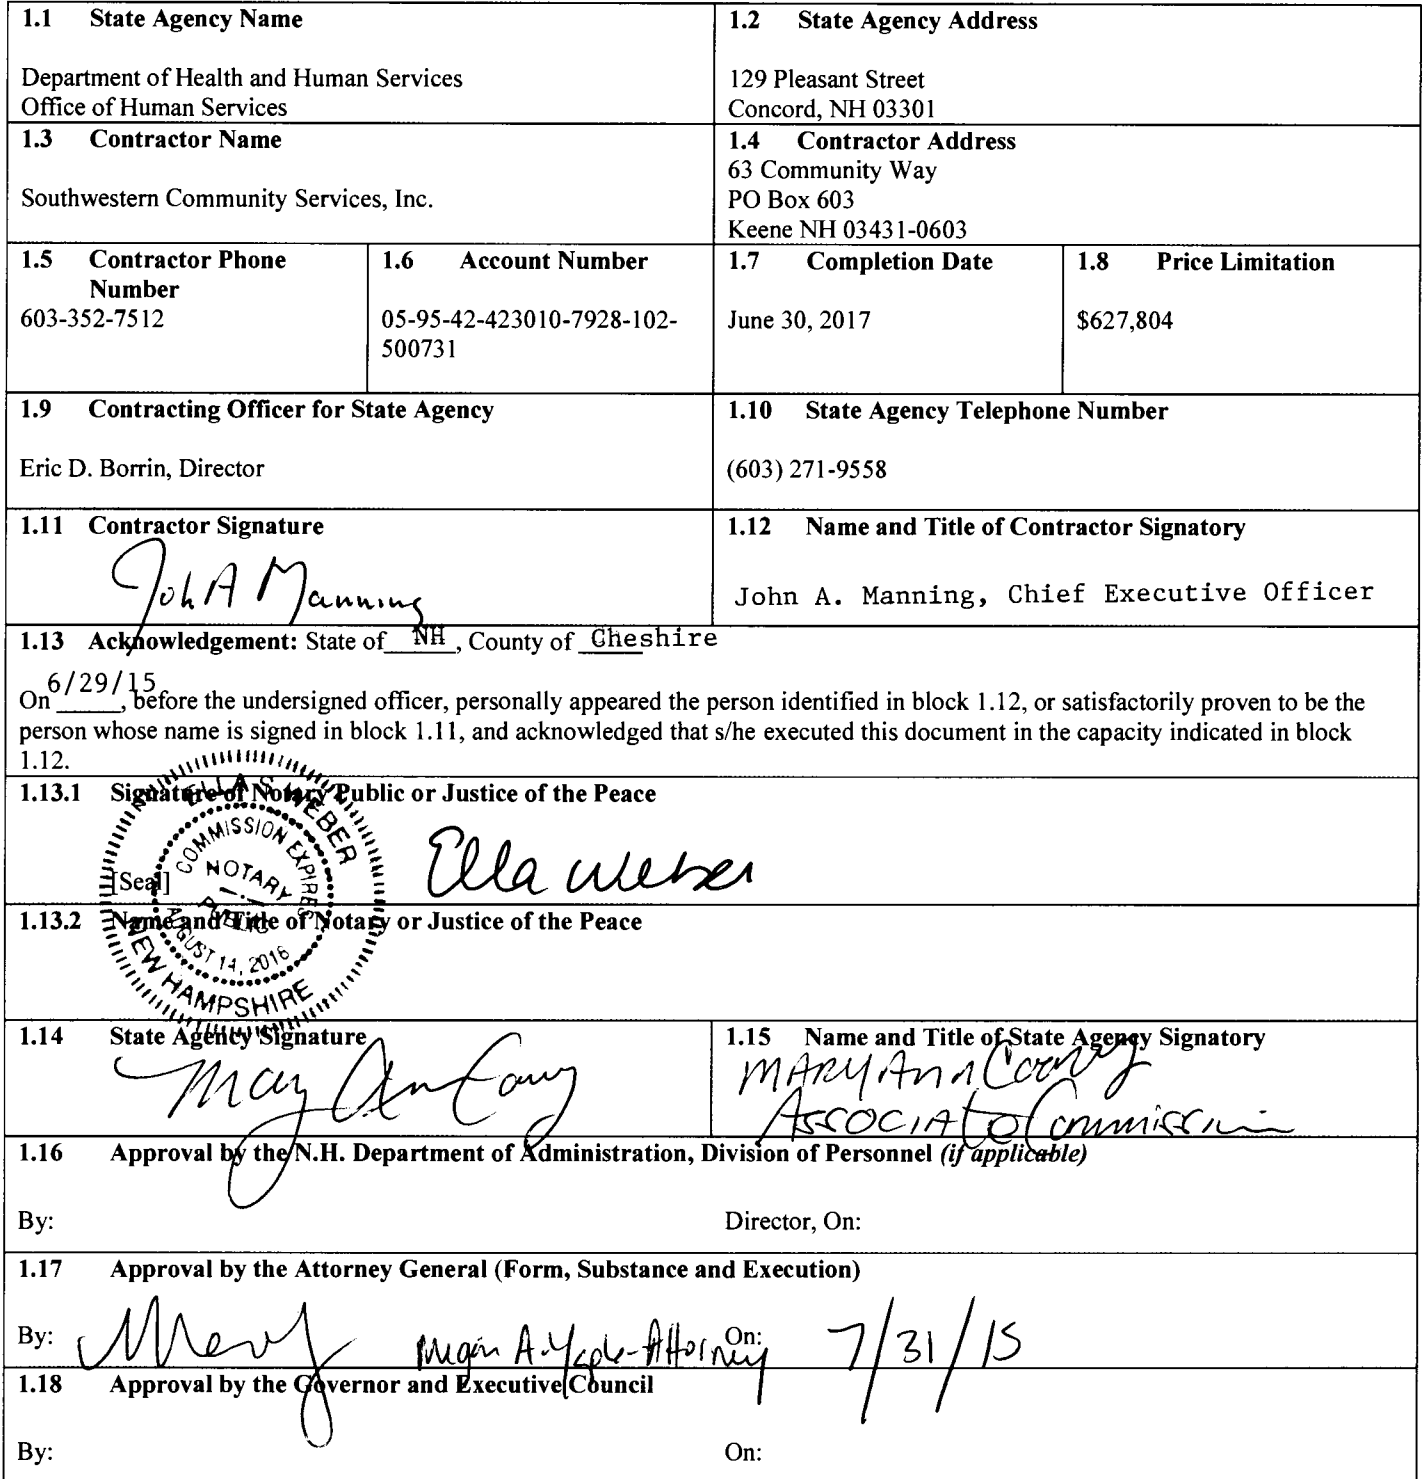 1.1 State Agency Name
Department of Health and Human Services
Office of Human Services
1.2 State Agency Address
129 Pleasant Street
Concord, NH 03301
1.3 Contractor Name
Southwestern Community Services, Inc.
1.4 Contractor Address
63 Community Way
PO Box 603
Keene NH 03431-0603
1.5 Contractor Phone
Number
603-352-7512
1.6 Account Number
05-95-42-423010-7928-102-
500731
1.7 Completion Date
June 30, 2017
1.8 Price Limitation
$627,804
1.9 Contracting Officer for State Agency
Eric D. Borrin, Director
1.10 State Agency Telephone Number
(603) 271-9558
1.11 Contractor Signature
John A Manning
1.12 Name and Title of Contractor Signatory
John A. Manning, Chief Executive Officer
1.13 Acknowledgement: State of NH, County of Cheshire
On 6/29/15, before the undersigned officer, personally appeared the person identified in block 1.12, or satisfactorily proven to be the
person whose name is signed in block 1.11, and acknowledged that s/he executed this document in the capacity indicated in block
1.12.
1.13.1 Signature of Notary Public or Justice of the Peace
[Seal]
Ella Weber
ELLA S. WEBER
COMMISSION EXPIRES
NOTARY
PUBLIC
AUGUST 14, 2016
NEW HAMPSHIRE
1.13.2 Name and Title of Notary or Justice of the Peace
1.14 State Agency Signature
Mary Ann Cooney
1.15 Name and Title of State Agency Signatory
MARY Ann Cooney
Associate Commissioner
1.16 Approval by the N.H. Department of Administration, Division of Personnel (if applicable)
By: Director, On:
1.17 Approval by the Attorney General (Form, Substance and Execution)
By: Megan A. Yaple-Attorney On: 7/31/15
1.18 Approval by the Governor and Executive Council
By: On: